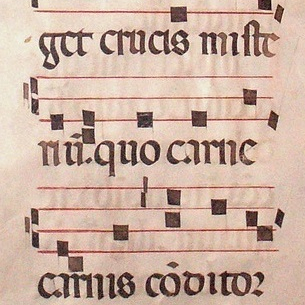 get crucis miste
riũ. quo carne
carnis cõditor